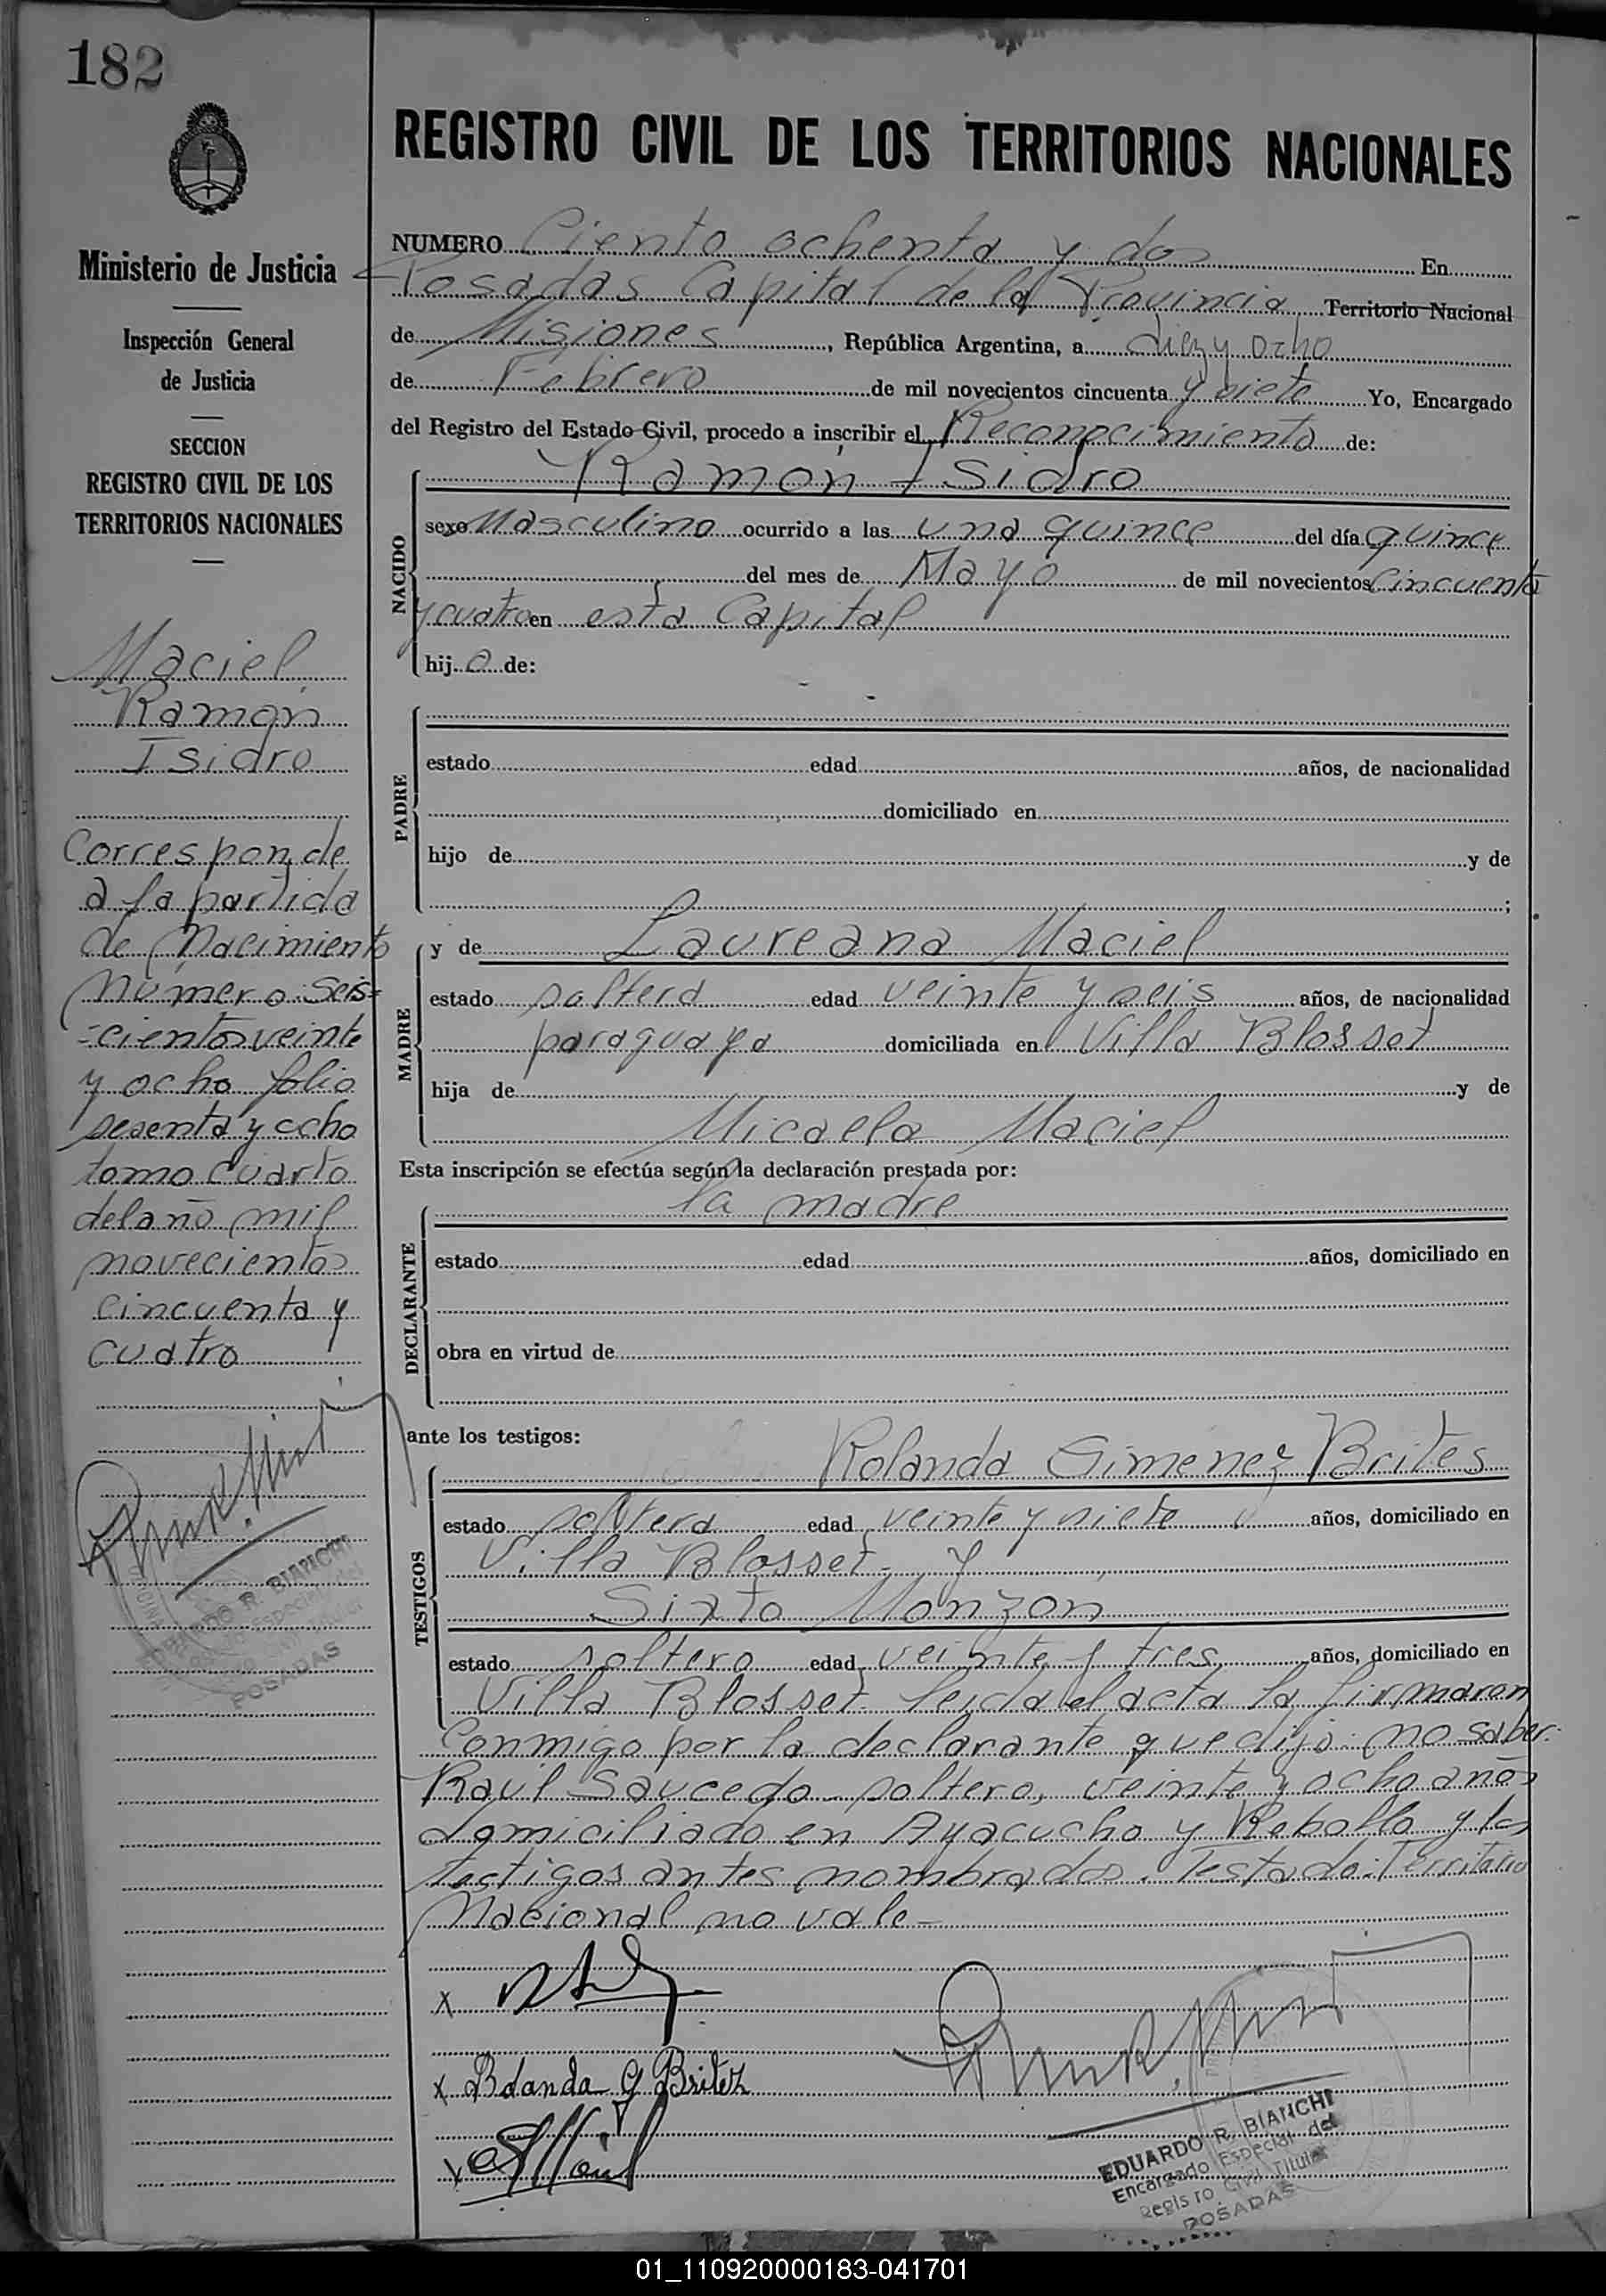 182
Ministerio de Justicia
Inspección General
de Justicia
SECCION
REGISTRO CIVIL DE LOS
TERRITORIOS NACIONALES
Maciel
Ramon
Isidro
Corresponde
a la partida
de Nacimiento
Número seis=
=cientos veinte
y ocho folio
sesenta y ocho
tomo cuarto
del año mil
novecientos
cincuenta y
cuatro
EDUARDO R. BIANCHI
POSADAS
REGISTRO CIVIL DE LOS TERRITORIOS NACIONALES
NUMERO Ciento ochenta y dos En
Posadas Capital de la Provincia Territorio Nacional
de Misiones, República Argentina, a diez y ocho
de Febrero de mil novecientos cincuenta y siete Yo, Encargado
del Registro del Estado Civil, procedo a inscribir el Reconocimiento de:
NACIDO
Ramon Isidro
sexo Masculino ocurrido a las una quince del día quince
del mes de Mayo de mil novecientos cincuenta
y cuatro en esta Capital
hijo de:
PADRE
estado edad años, de nacionalidad
domiciliado en
hijo de y de
;
MADRE
y de Laureana Maciel
estado soltera edad veinte y seis años, de nacionalidad
paraguaya domiciliada en Villa Blosset
hija de y de
Micaela Maciel
Esta inscripción se efectúa según la declaración prestada por:
DECLARANTE
la madre
estado edad años, domiciliado en
obra en virtud de
ante los testigos:
TESTIGOS
Rolanda Gimenez Brites
estado soltera edad veinte y siete años, domiciliado en
Villa Blosset - y
Sixto Monzon
estado soltero edad veinte y tres años, domiciliado en
Villa Blosset - leida el acta la firmaron
conmigo por la declarante que dijo no saber:
Raúl Saucedo - soltero, veinte y ocho años
domiciliado en Ayacucho y Rebollo y los
testigos antes nombrados. Testado: Territorio
Nacional no vale -
x
x Rolanda G Britez
x
EDUARDO R. BIANCHI
Encargado Especial del
Registro Civil Titular
POSADAS
01_110920000183-041701